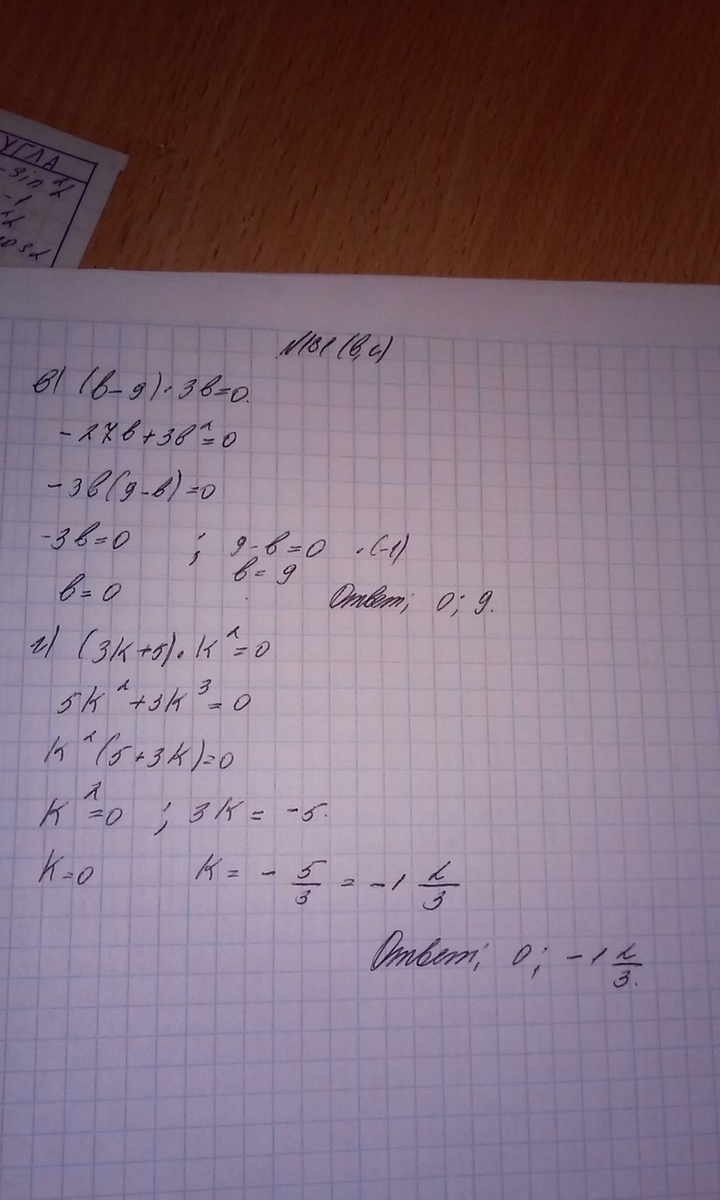 УГЛА
№181 (в,г)
в) (в-9)·3в=0.
-27в+3в²=0
-3в(9-в)=0
-3в=0 ; 9-в=0 ·(-1)
в=0 в=9
Ответ; 0; 9.
г) (3к+5)·к²=0
5к²+3к³=0
к²(5+3к)=0
к²=0 ; 3к= -5.
к=0 к= - 5/3 = -1 2/3
Ответ; 0; -1 2/3.